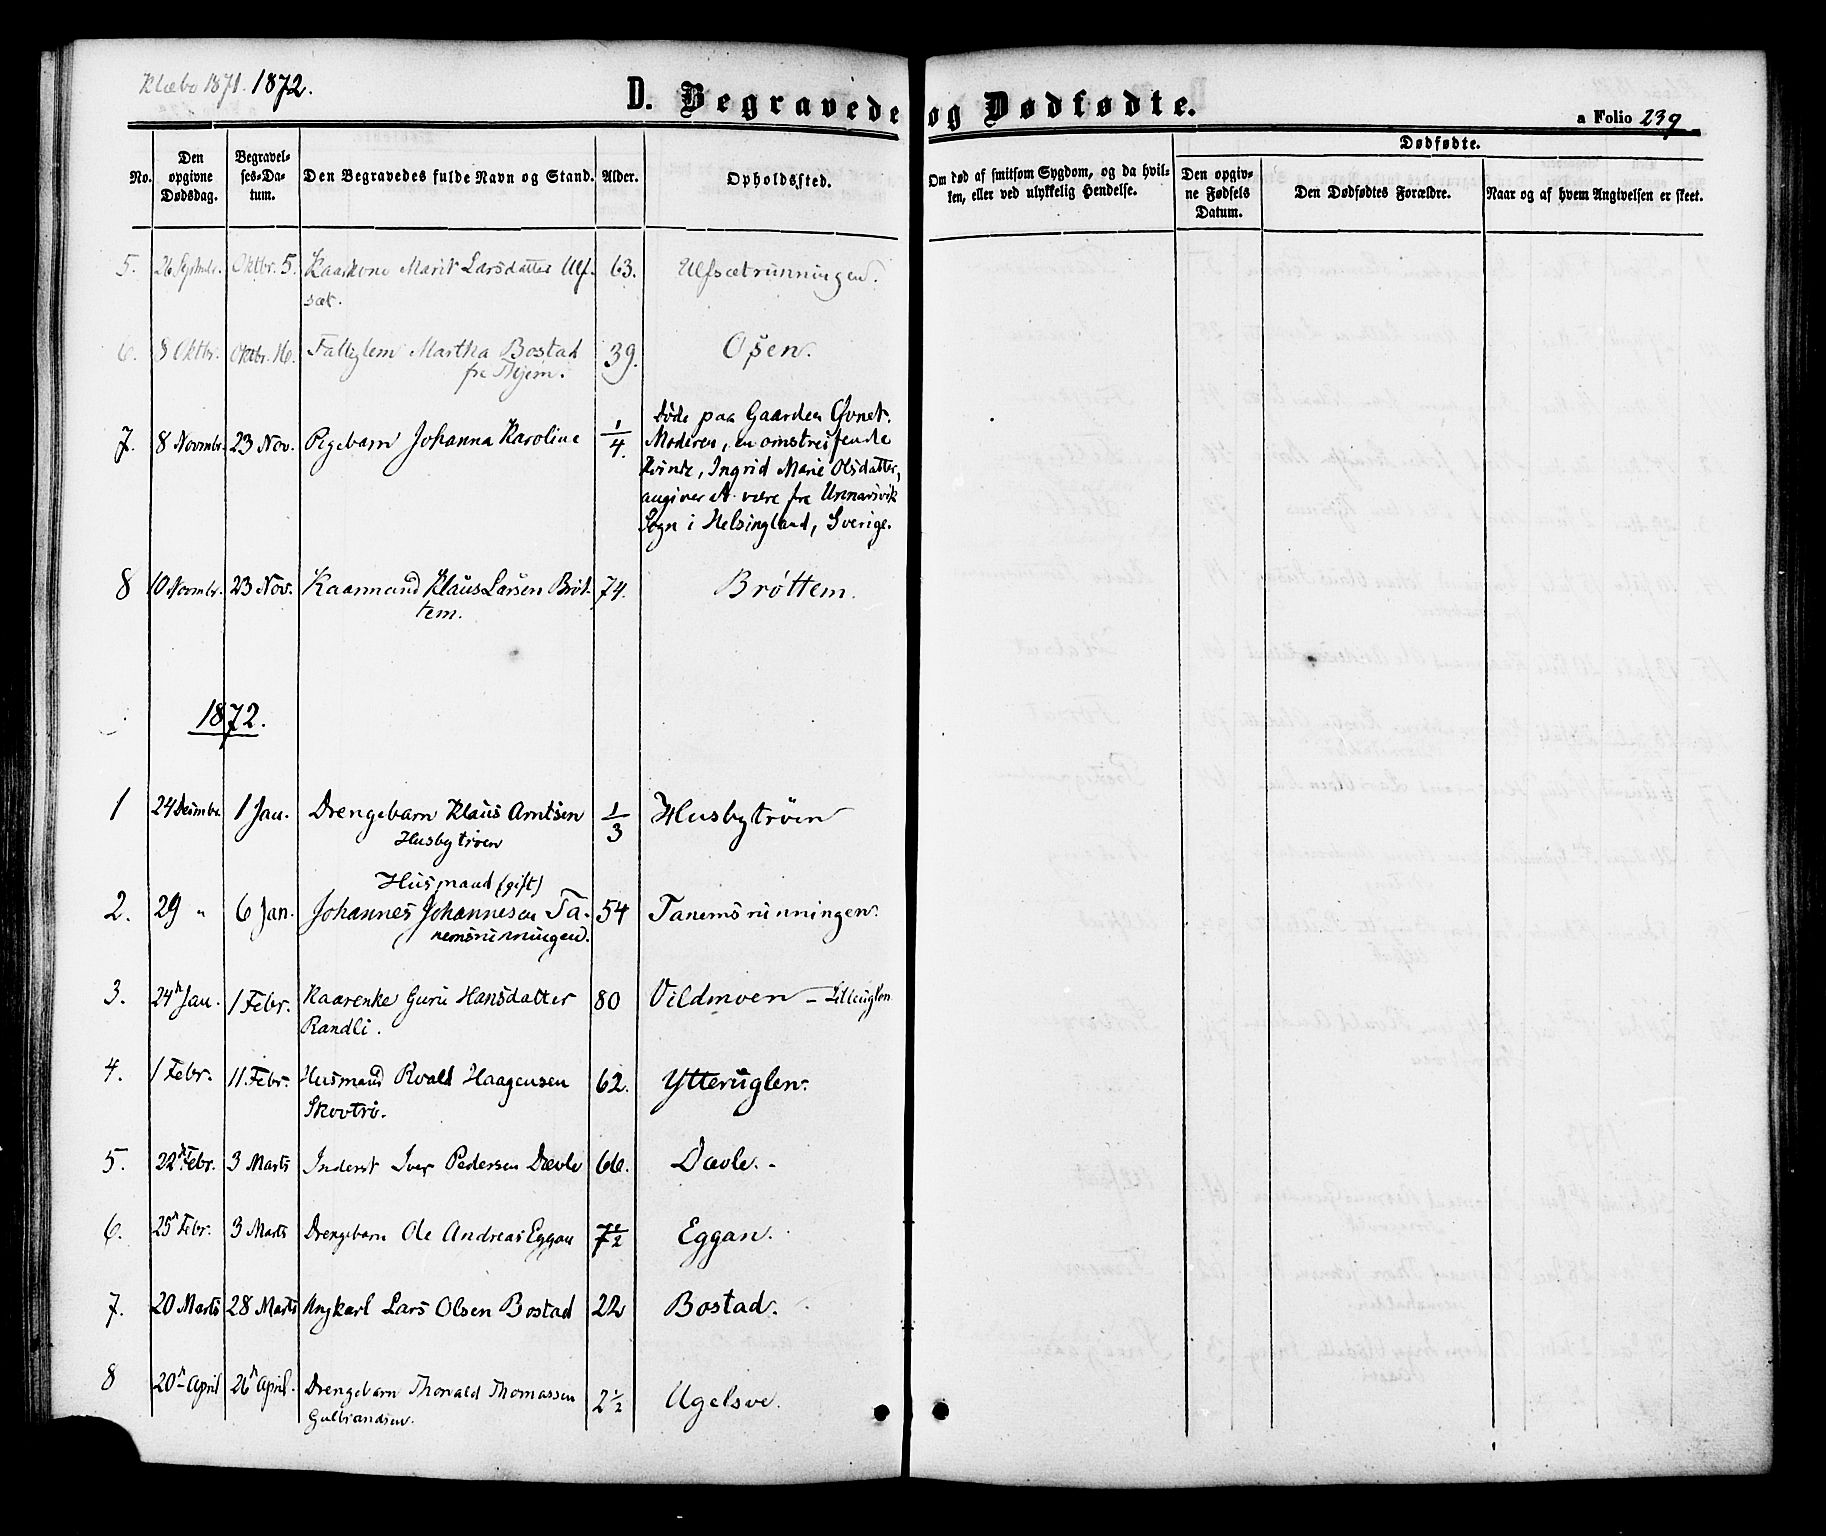 Klæbo 1871. 1872.
D. Begravede og Dødfødte.
a Folio 239
No.
Den opgivne Dødsdag.
Begravelses-Datum.
Den Begravedes fulde Navn og Stand.
Alder.
Opholdssted.
Om død af smitsom Sygdom, og da hvilken, eller ved ulykkelig Hendelse.
Dødfødte.
Den opgivne Fødsels Datum.
Den Dødfødtes Forældre.
Naar og af hvem Angivelsen er skeet.
5. 26 Septbr. Oktbr. 5. Kaarkone Marit Larsdatter Ulf- 63. Ulfsætrunningen.
sæt.
6. 8 Oktbr. Oktbr. 16. Fattiglem Martha Bostad 39. Osen.
fra
7. 8 Novmbr. 23 Nov. Pigebarn Johanna Karoline 1/4. Døde paa Gaarden
Moderen, en omstreifende
Kvinde, Ingrid Marie Olsdatter,
angiver at være fra
Sogn i Helsingland, Sverige.
8 10 Novmbr. 23 Nov. Kaarmand Klaus Larsen Brøt- 74. Brøttem.
tem.
1872.
1 24 Desmbr. 1 Jan. Drengebarn Klaus Arntsen 1/3 Husbytrøen
Husbytrøen
Husmand (gift)
2. 29 " 6 Jan. Johannes Johannesen Ta- 54 Tanemsrunningen.
nemsrunningen.
3. 24de Jan. 1 Febr. Kaarenke Guru Hansdatter 80 Vildmoen - Litleuglen
Randli.
4. 1 Febr. 11 Febr. Husmand Roald Haagensen 62. Ytteruglen.
Skovtrø.
5. 22de Febr. 3 Marts Inderst Iver Pedersen Dævle 66. Dævle.
6. 25de Febr. 3 Marts Drengebarn Ole Andreas Eggan 7 1/2 Eggan.
7. 20 Marts 28 Marts Ungkarl Lars Olsen Bostad 22 Bostad.
8 20de April 26de April. Drengebarn Thonald Thomassen 2 1/2 Ugelsve.
Gulbrandsen.